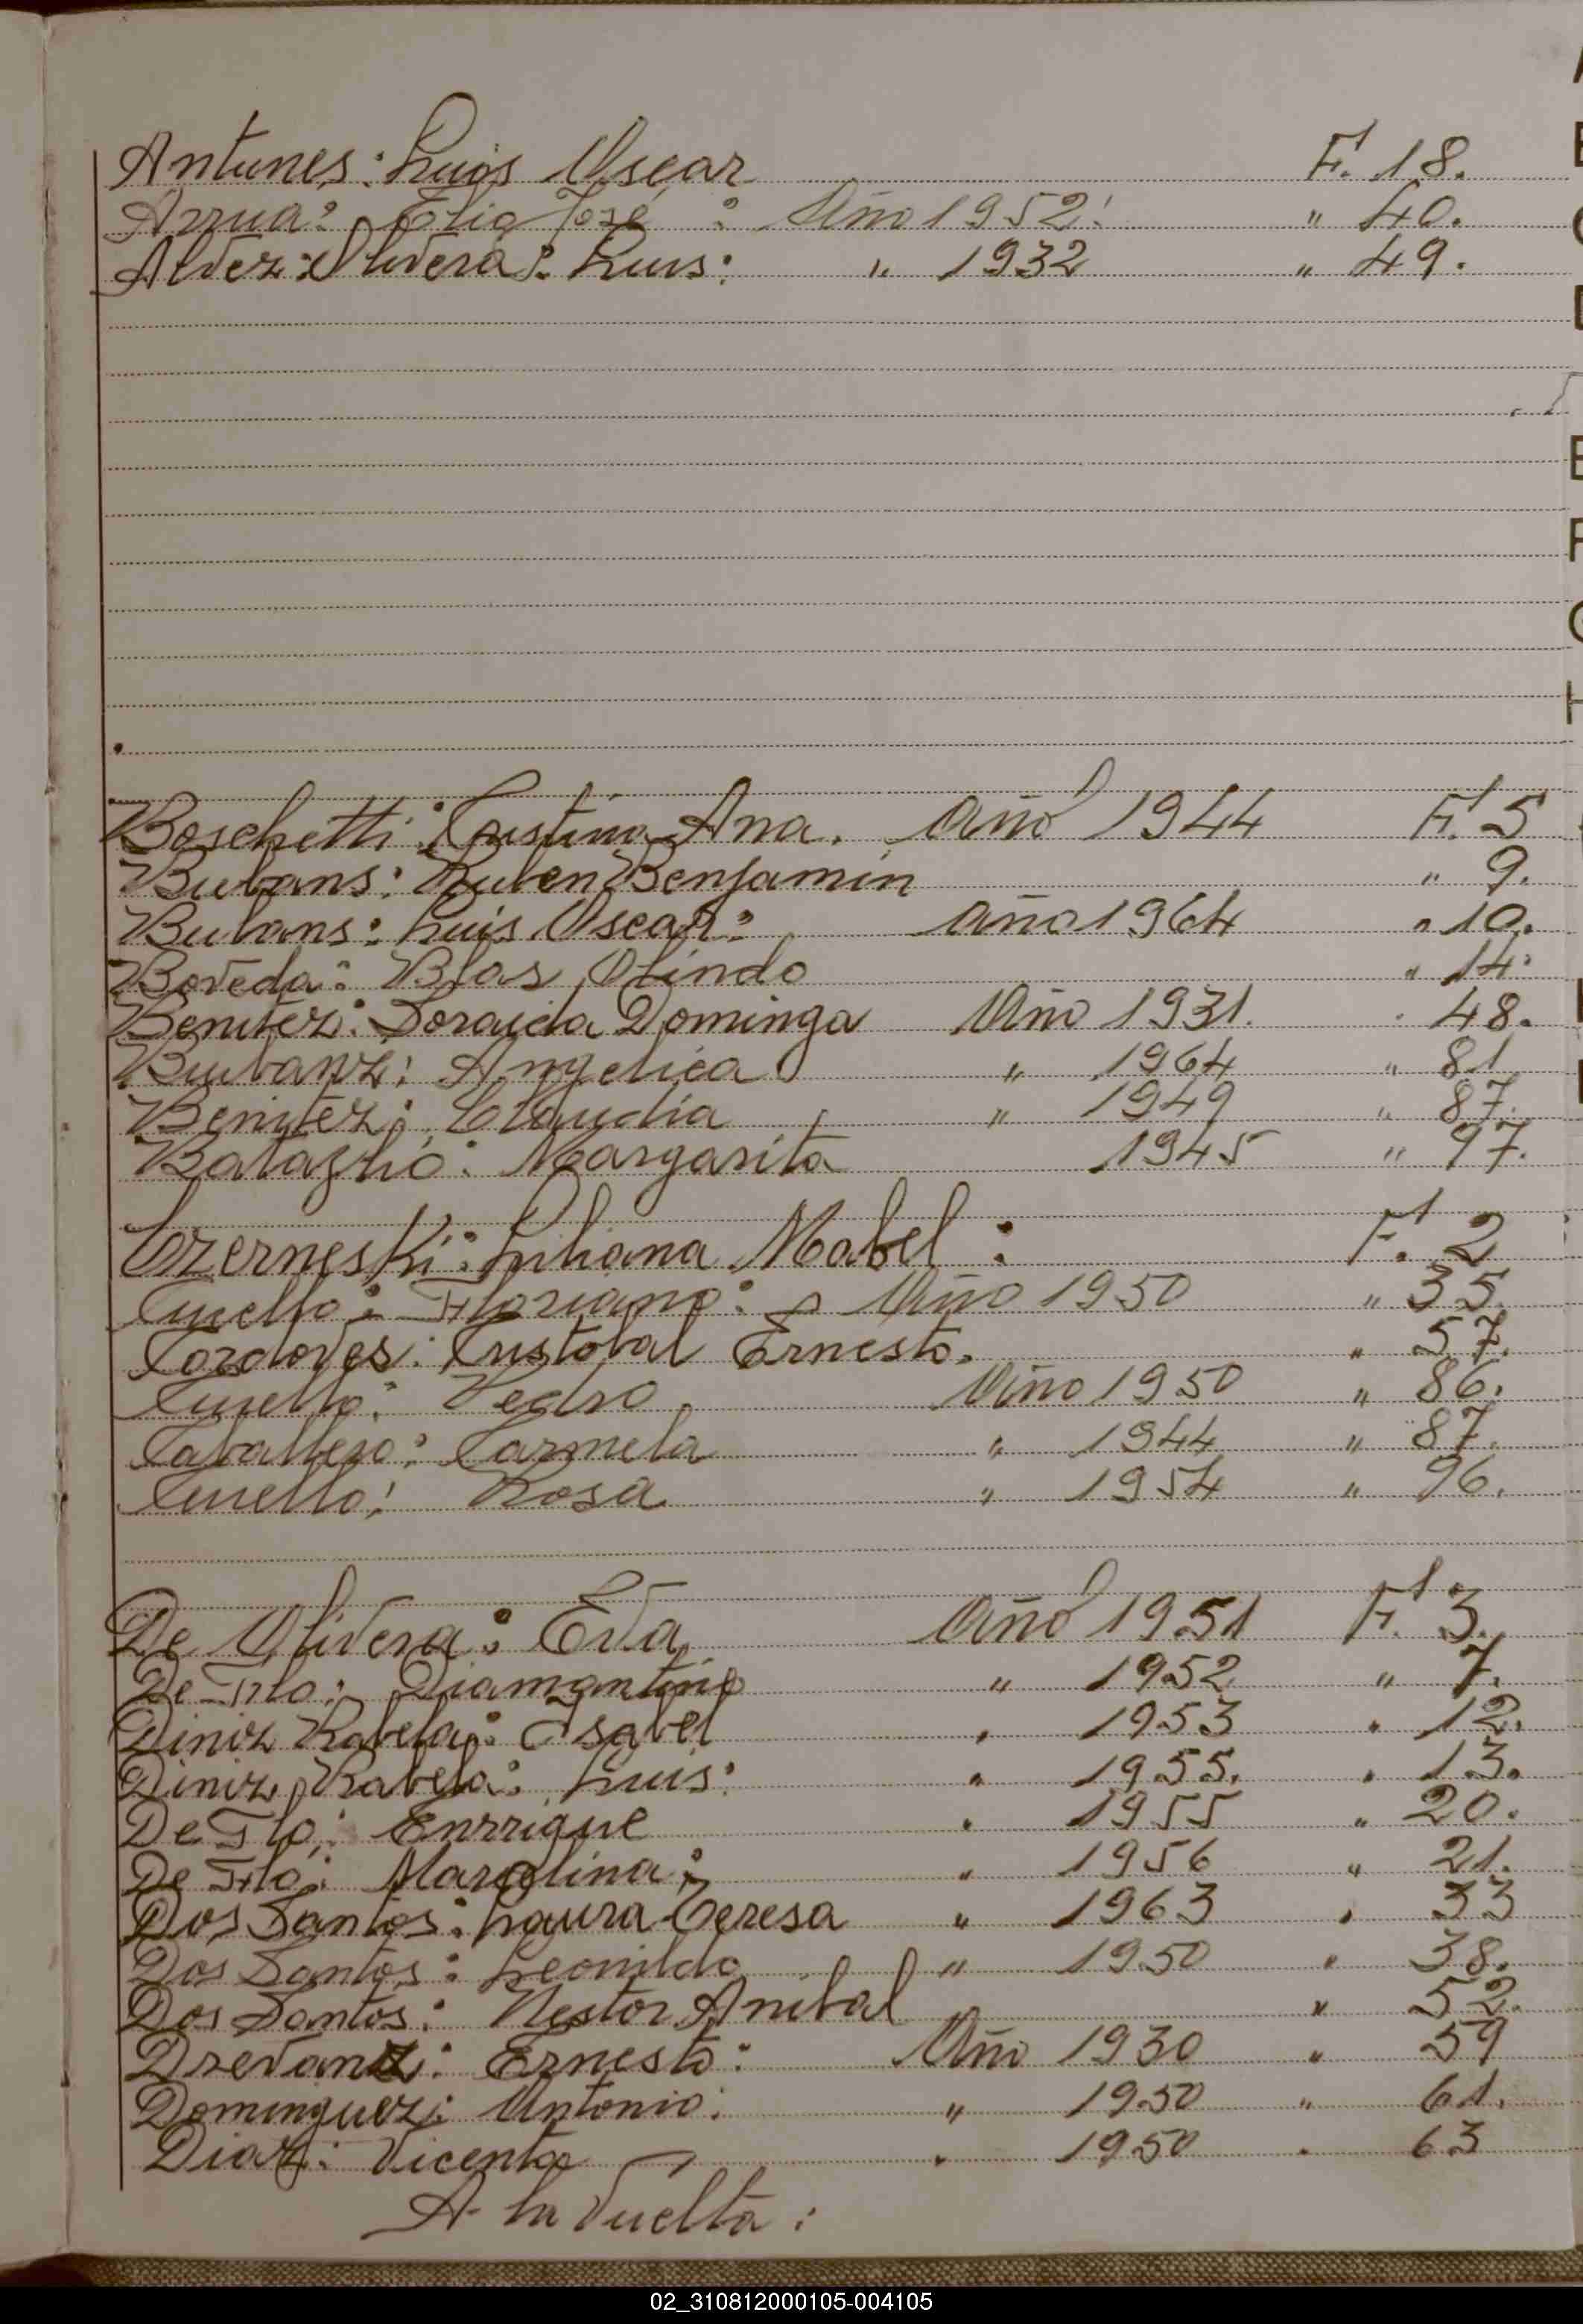 Antunes: Luis Oscar F. 18.
Arrua: Elio José : Año 1952: " 40.
Alvez Olivera: Luis: " 1932 " 49.
Boschetti: Cristina Ana. Año 1944 F. 5
Bubans: Ruben Benjamin " 9.
Bubans: Luis Oscar: Año 1964 " 10.
Boveda: Blas Olindo " 14.
Benitez: Soraida Dominga Año 1931. 48.
Bubanz: Angelica " 1964 " 81
Benitez: Claudia " 1949 " 87.
Margarita 1945 " 97.
Czerneski: Liliana Mabel : F. 2
Cuello: Floriano: Año 1950 " 35.
Cordoves: Cristobal Ernesto. " 57.
Cuello: Pedro Año 1950 " 86.
Caballero: Carmela " 1944 " 87.
Cuello: Rosa " 1954 " 96.
De Olivera: Eva Año 1951 F. 3.
De Flo: Diamantino " 1952 " 7.
Diniz Rabela: Isabel " 1953 " 12.
Diniz Rabela: Luis: " 1955. " 13.
De Flo: Enrrique " 1955 " 20.
De Flo: Marcolina: " 1956 " 21.
Dos Santos: Laura Teresa " 1963 " 33
Dos Santos: Leonildo " 1950 " 38.
Dos Santos: Nestor Anibal " 52.
Drevanz: Ernesto: Año 1930 " 59
Dominguez: Antonio: " 1950 " 61.
Diaz: Vicenta " 1950 " 63
A la Vuelta :
02_310812000105-004105